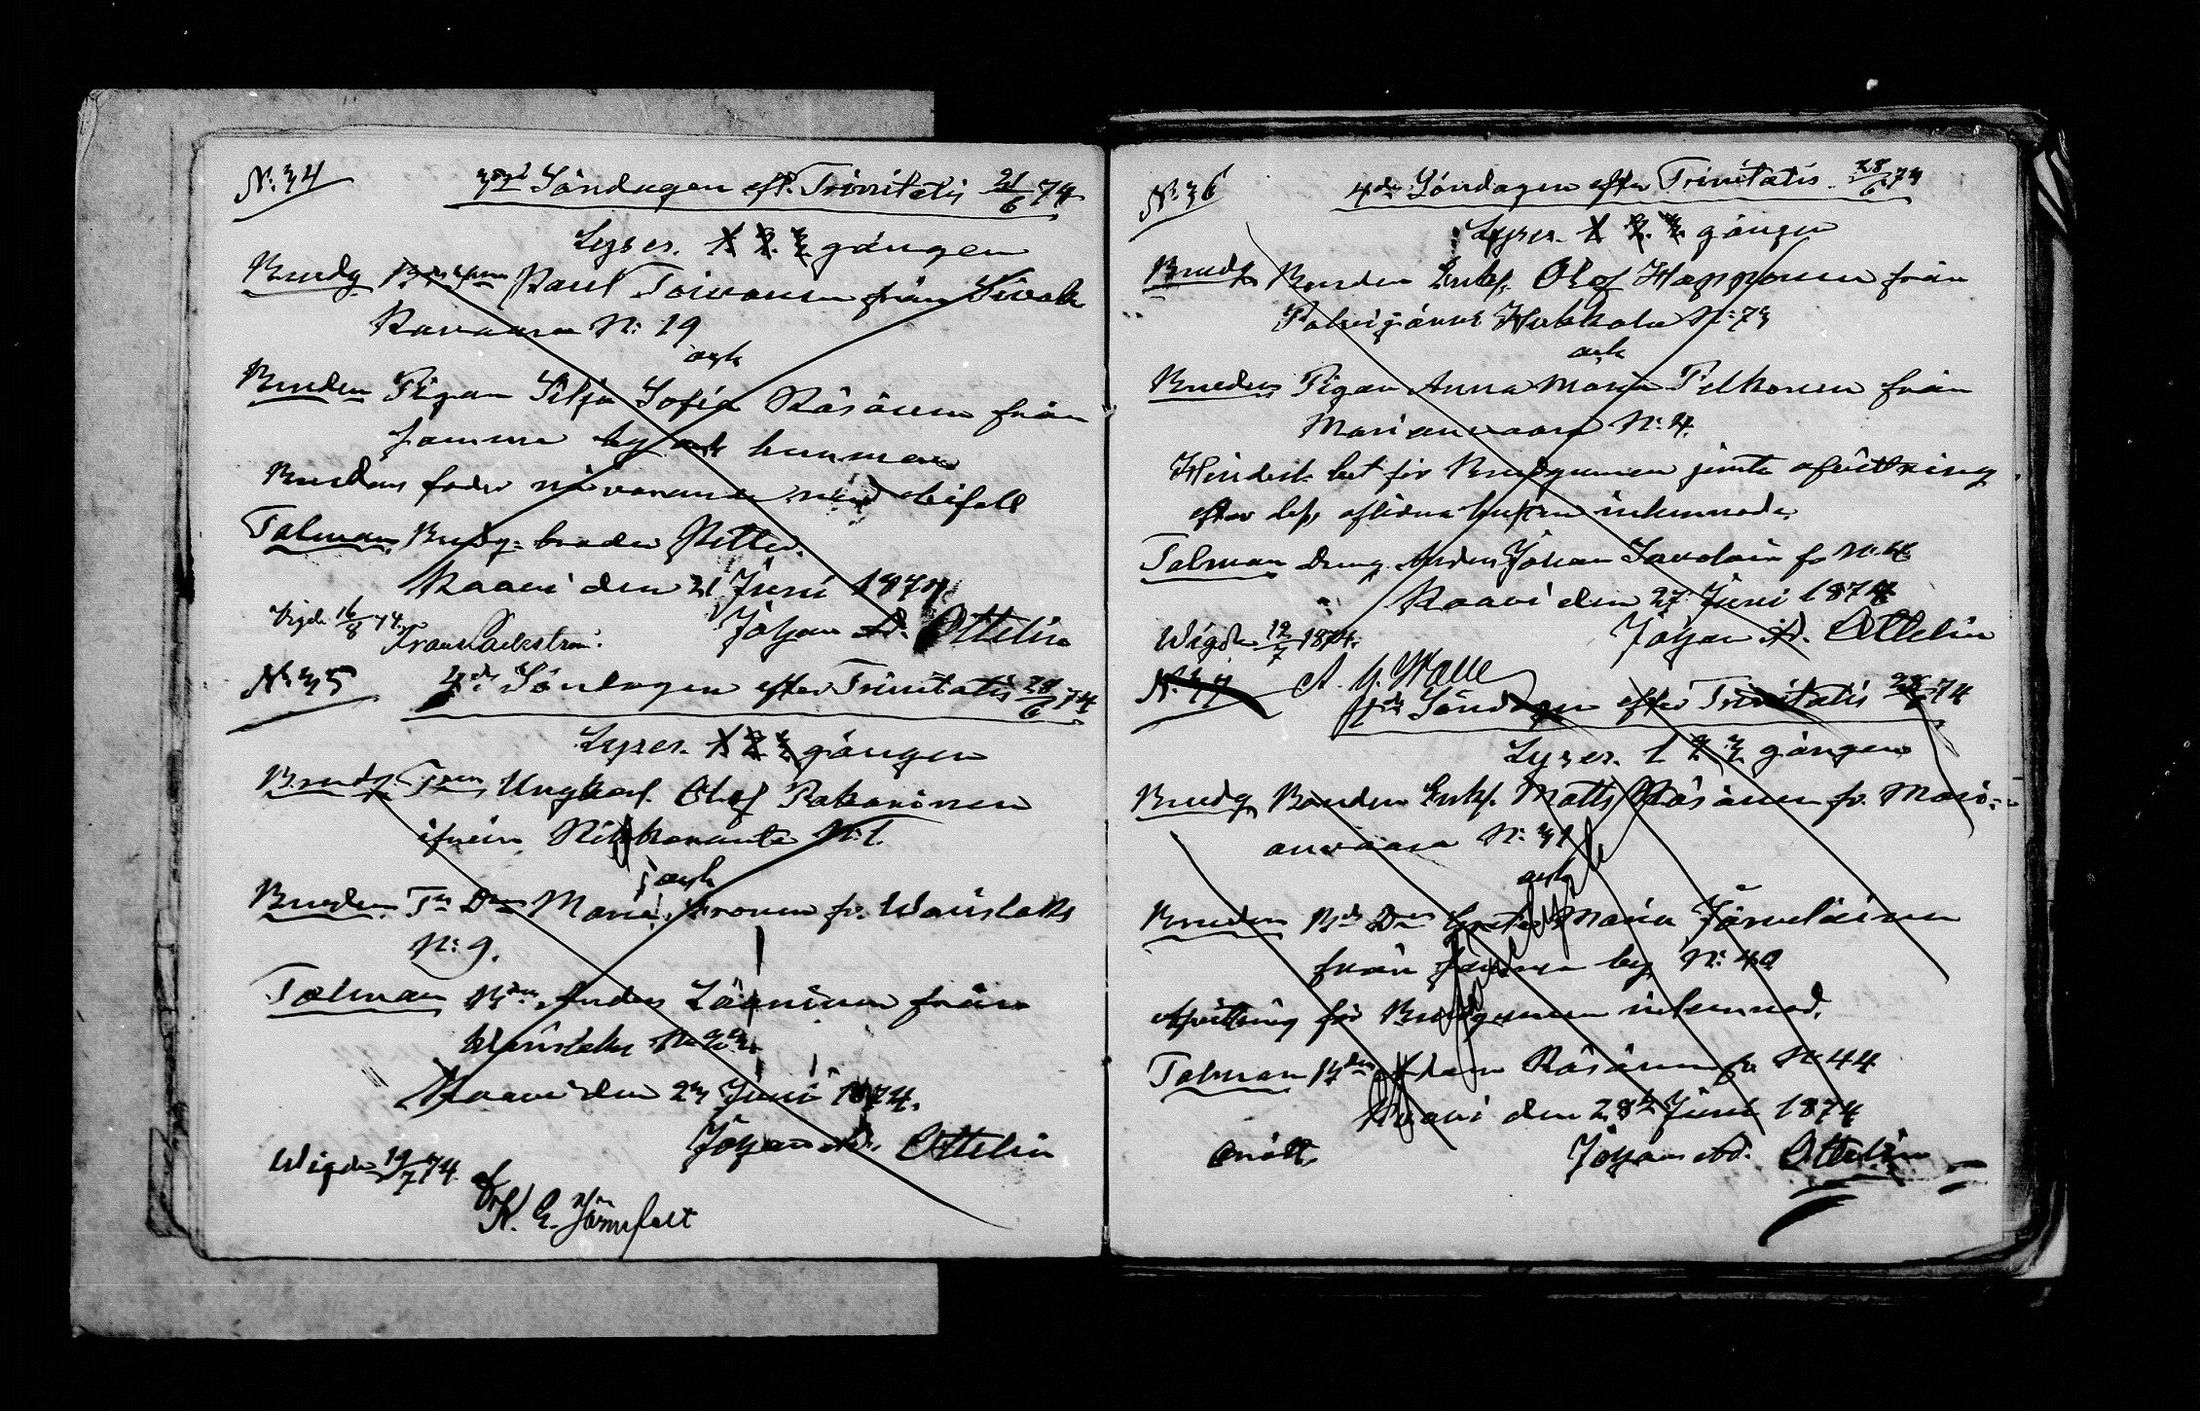 N:34
3dje Söndagen eft. Trinitatis 21/6 74
Lyses. 1 2. 3 gången
Brudg. Paul Toivanen från Sivak
Kavaara N: 19
och
Bruden Pigan Silja Sofia Räsänen från
samma by och nummer
Brudens fader närvarande med bifall
Talman, Brudg: broder Petter.
Kaavi den 21 Juni 1874.
Johan Ad. Ottelin
Vigde 16/8 74.
Frans Packström.
N:35
4de Söndagen efter Trinitatis 28/6 74
Lyses. 1 2 3 gången
Brudg. Ungkarl. Olof
ifrån N:1.
och
Bruden Maria fr. Wänislaks
N:9.
Talman Anders från
Wänislaks
Kaavi den 23 Juni 1874.
Johan Ad. Ottelin
Wigde 19/7 74.
af
K. E. Järnefelt
N:36
4de Söndagen efter Trinitatis. 28/6 74
Lyses. 1 2. 3. gången
Brudg. Bonden Enkl. Olof Happonen från
Polvijärvi Hukkala N:73
och
Bruden Pigan Anna Maria Pelkonen från
Marianvaara N:4.
Hindersl. bet för Brudgummen jemte afvittring
efter dess aflidna hustru inlemnade.
Talman Dreng. Anders Johan Savolain fr N:4
Kaavi den 27 Juni 1874
Johan Ad. Ottelin
Wigde. 12/7 1874.
A. G. Walle
N:37
4de Söndagen efter Trinitatis 28/6 74
Lyses. 1 2 3 gången
Brudg. Bonden Enkl. Matts Räsänen fr. Mari-
anvaara N: 31
och
Bruden Maria Järveläinen
från samma by N: 40
Afvittring för Brudgummen inlemnad.
Talman Adam Räsänen fr N:44
Kaavi den 28 Juni 1874
Johan Ad. Ottelin